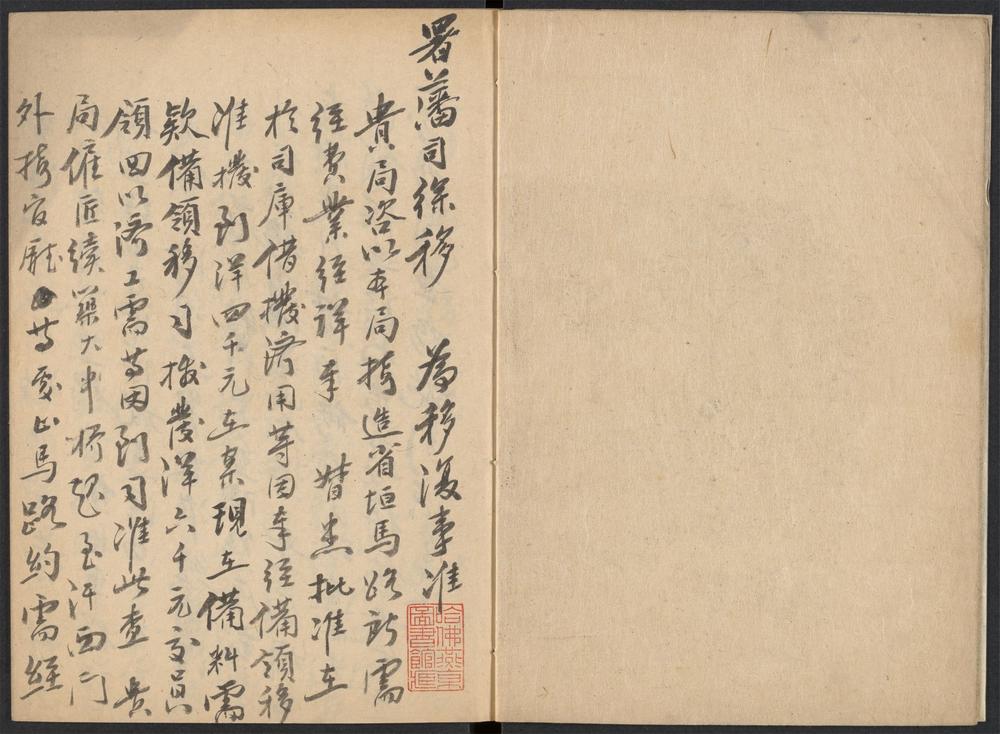 署藩司徐移　為移復事准
貴局咨以本局接造省垣馬路所需
經費業經詳奉　督憲批准在
於司庫借撥濟用等因奉經備領移
准撥到洋四千元在案現在備料需
款備領移司撥發洋六千元交員
領回以濟工需等因到司准此查　貴
局僱匠續築大中橋起至汗西門
外接官廳等處止馬路約需經
哈佛燕京
圖書館藏